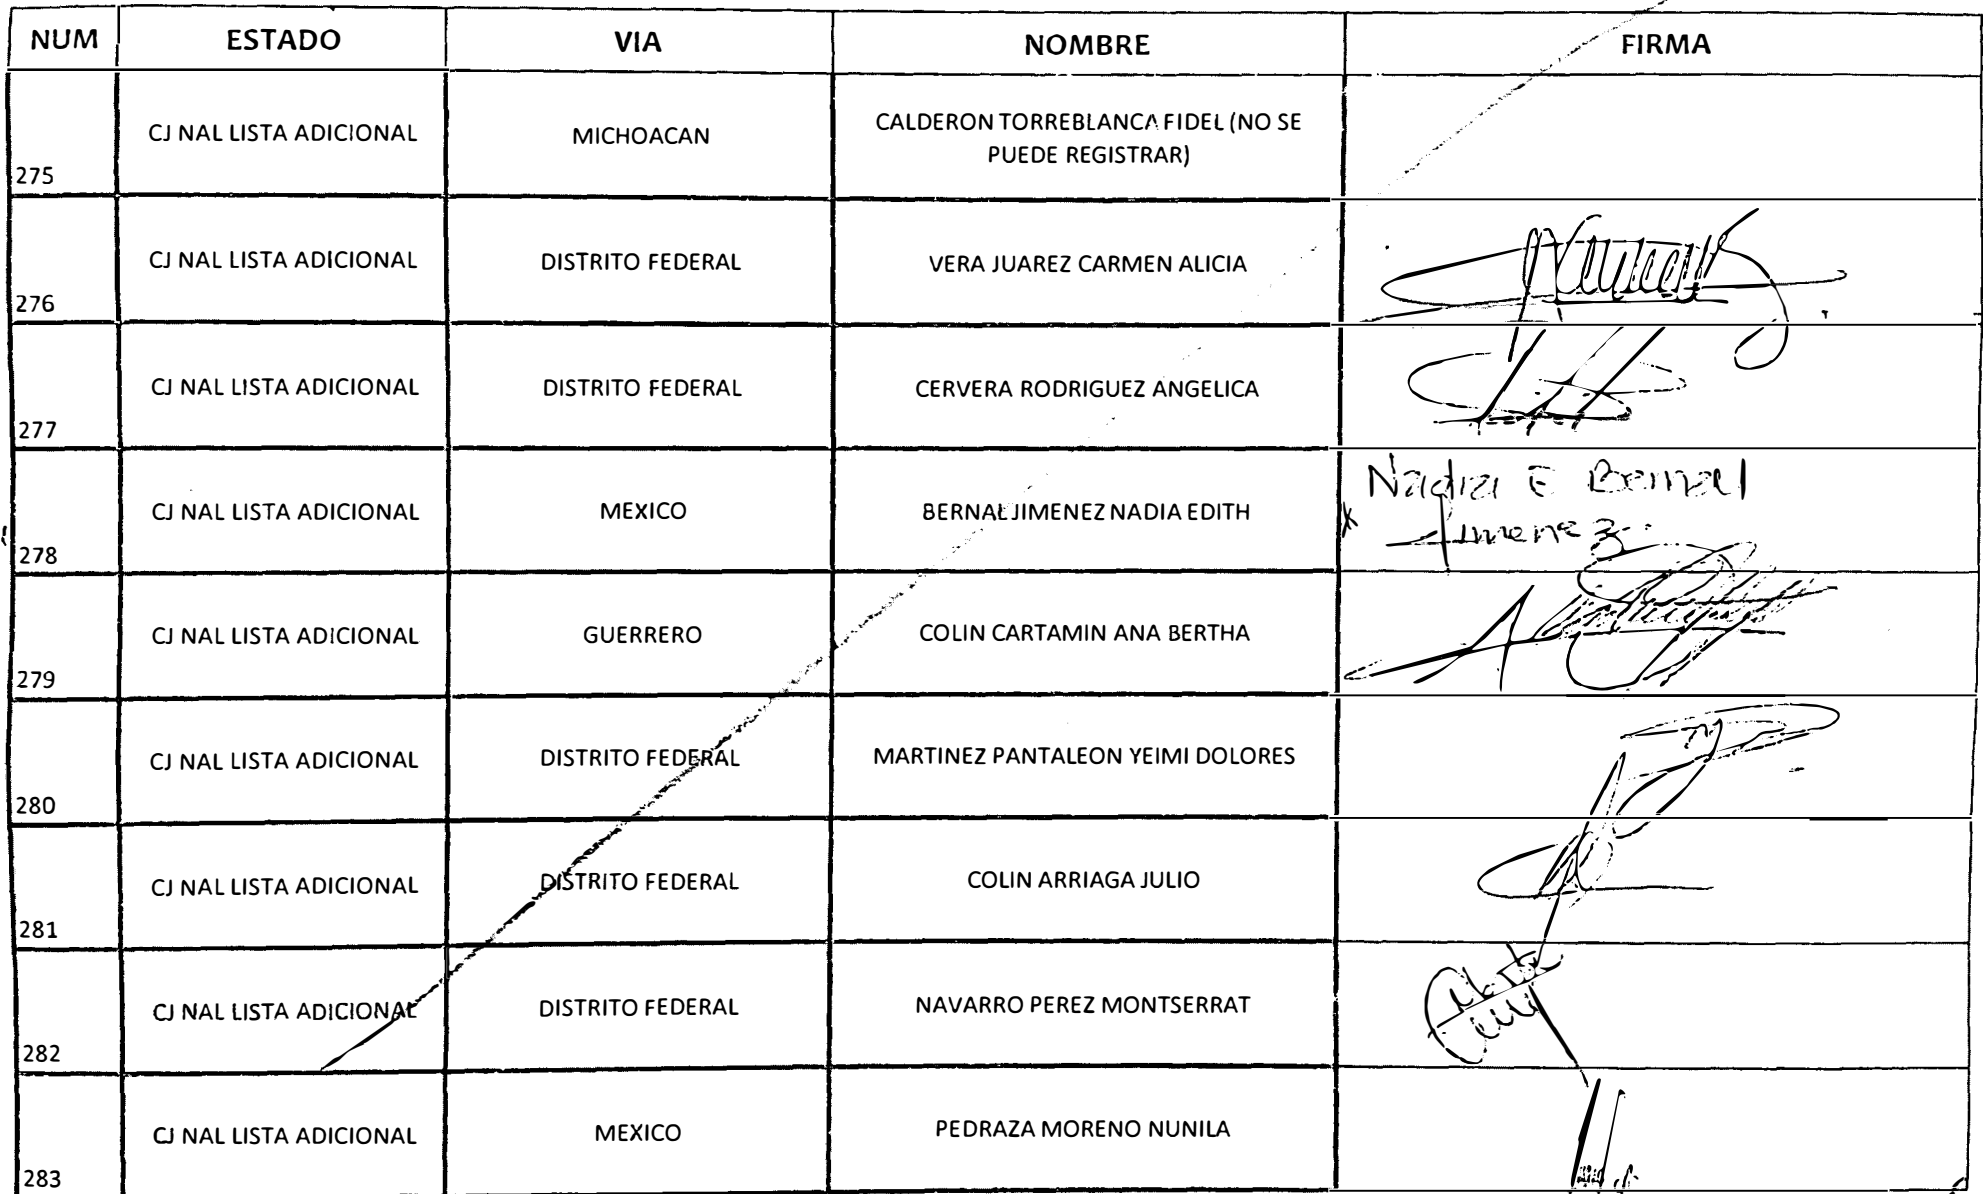 NUM ESTADO VIA NOMBRE FIRMA
CALDERON TORREBLANCA FIDEL (NO SE
CJ NAL LISTA ADICIONAL MICHOACAN
PUEDE REGISTRAR)
275
CJ NAL LISTA ADICIONAL DISTRITO FEDERAL VERA JUAREZ CARMEN ALICIA
276
CJ NAL LISTA ADICIONAL DISTRITO FEDERAL CERVERA RODRIGUEZ ANGELICA
277
Nadia E Bernal
CJ NAL LISTA ADICIONAL MEXICO BERNAL JIMENEZ NADIA EDITH
Jimenez
278
CJ NAL LISTA ADICIONAL GUERRERO COLIN CARTAMIN ANA BERTHA
279
CJ NAL LISTA ADICIONAL DISTRITO FEDERAL MARTINEZ PANTALEON YEIMI DOLORES
280
CJ NAL LISTA ADICIONAL DISTRITO FEDERAL COLIN ARRIAGA JULIO
281
CJ NAL LISTA ADICIONAL DISTRITO FEDERAL NAVARRO PEREZ MONTSERRAT
282
CJ NAL LISTA ADICIONAL MEXICO PEDRAZA MORENO NUNILA
283